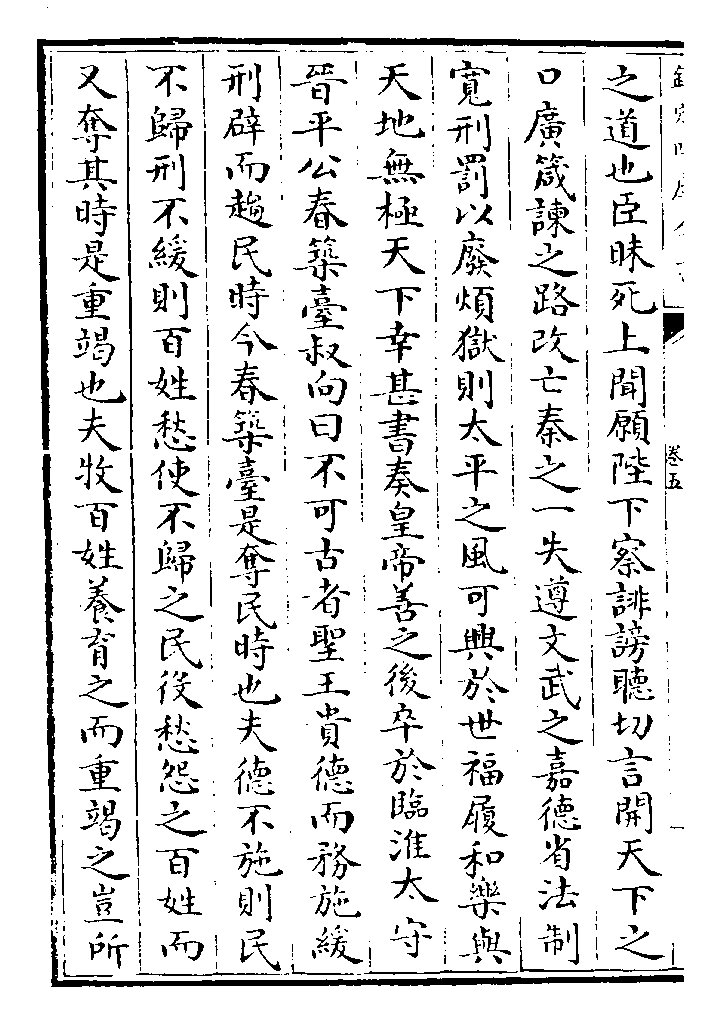 之道也臣昧死上聞願陛下察誹謗聽切言開天下之
口廣箴諫之路改亡秦之一失遵文武之嘉德省法制
寛刑罰以廢煩獄則太平之風可興於世福履和樂與
天地無極天下幸甚書奏皇帝善之後卒於臨淮太守
晉平公春築臺叔向曰不可古者聖王貴德而務施緩
刑辟而趨民時今春築臺是奪民時也夫德不施則民
不歸刑不緩則百姓愁使不歸之民役愁怨之百姓而
又奪其時是重竭也夫牧百姓養育之而重竭之豈所
卷五